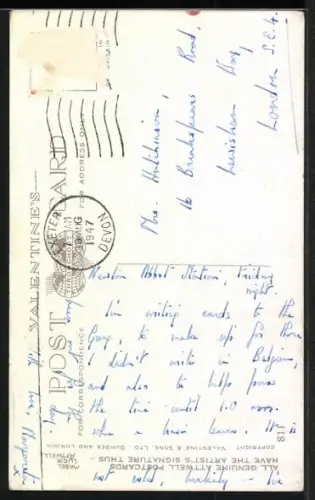 VALENTINE'S
POST CARD
FOR CORRESPONDENCE
FOR ADDRESS ONLY
EXETER
AUG
1947
DEVON
Mrs. Hutchinson,
16 Road,
Lewisham Way,
London S.E.4.
Newton Abbot Station, Friday
night.
I'm writing cards to the
Gang, to make up for those
I didn't write in Belgium,
and also to help pass
the time until 1.0
when a train leaves. It is
not cold, luckily - I've
love, Margaret
ALL GENUINE ATTWELL POSTCARDS
HAVE THE ARTIST'S SIGNATURE THUS:-
MABEL
LUCIE
ATTWELL
COPYRIGHT. VALENTINE & SONS, LTD. DUNDEE AND LONDON